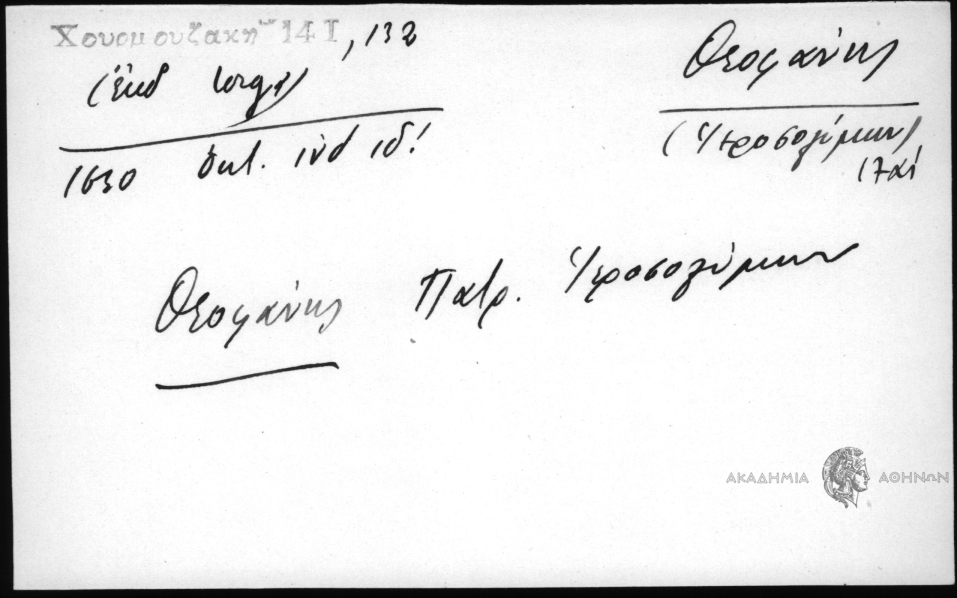 Χουρμουζακη 14 I, 132
(ἐκδ Iorga)
1630 ὀκτ. ἰνδ ιδ!
Θεοφάνης
(Ἱεροσολύμων)
17 αἰ
Θεοφάνης Πατρ. Ἱεροσολύμων
ΑΚΑΔΗΜΙΑ ΑΘΗΝΩΝ